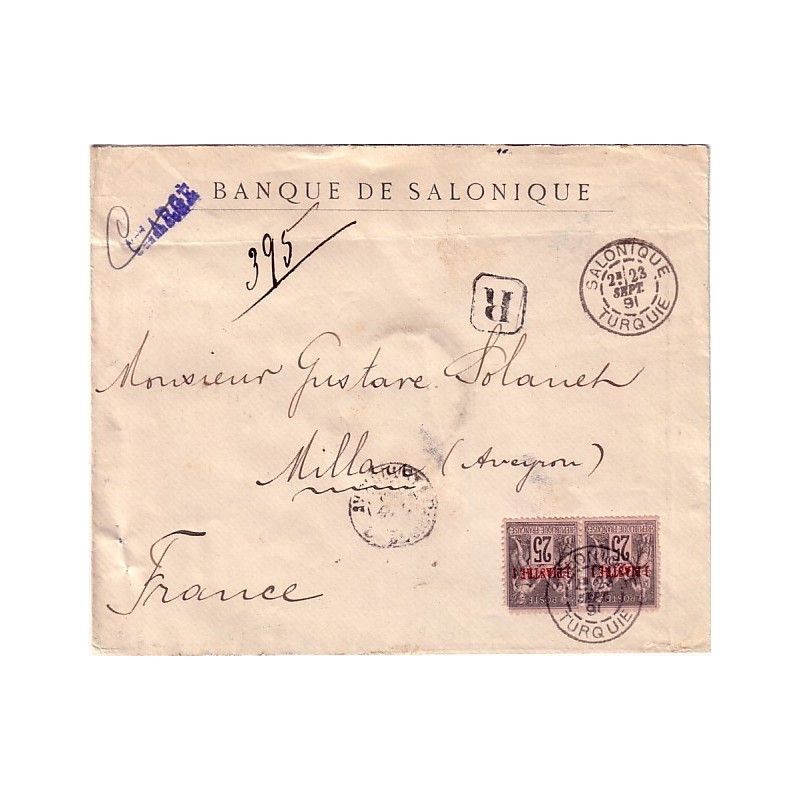 BANQUE DE SALONIQUE
CHARGÉ
395
R
SALONIQUE
2E 23
SEPT.
91
TURQUIE
Monsieur Gustave Solanet
Millau (Aveyron)
France
REPUBLIQUE FRANÇAISE REPUBLIQUE FRANÇAISE
25 25
1 PIASTRE 1 1 PIASTRE 1
POSTE POSTE
SALONIQUE
23
SEPT.
91
TURQUIE